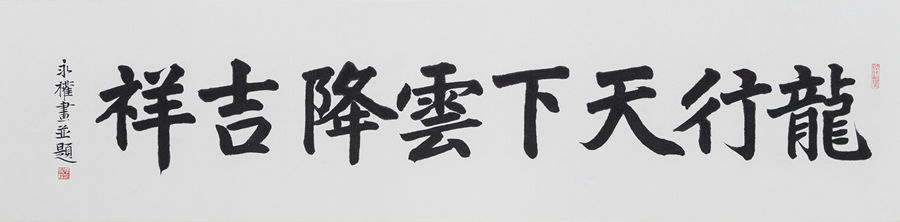 龍行天下雲降吉祥
永權畫並題